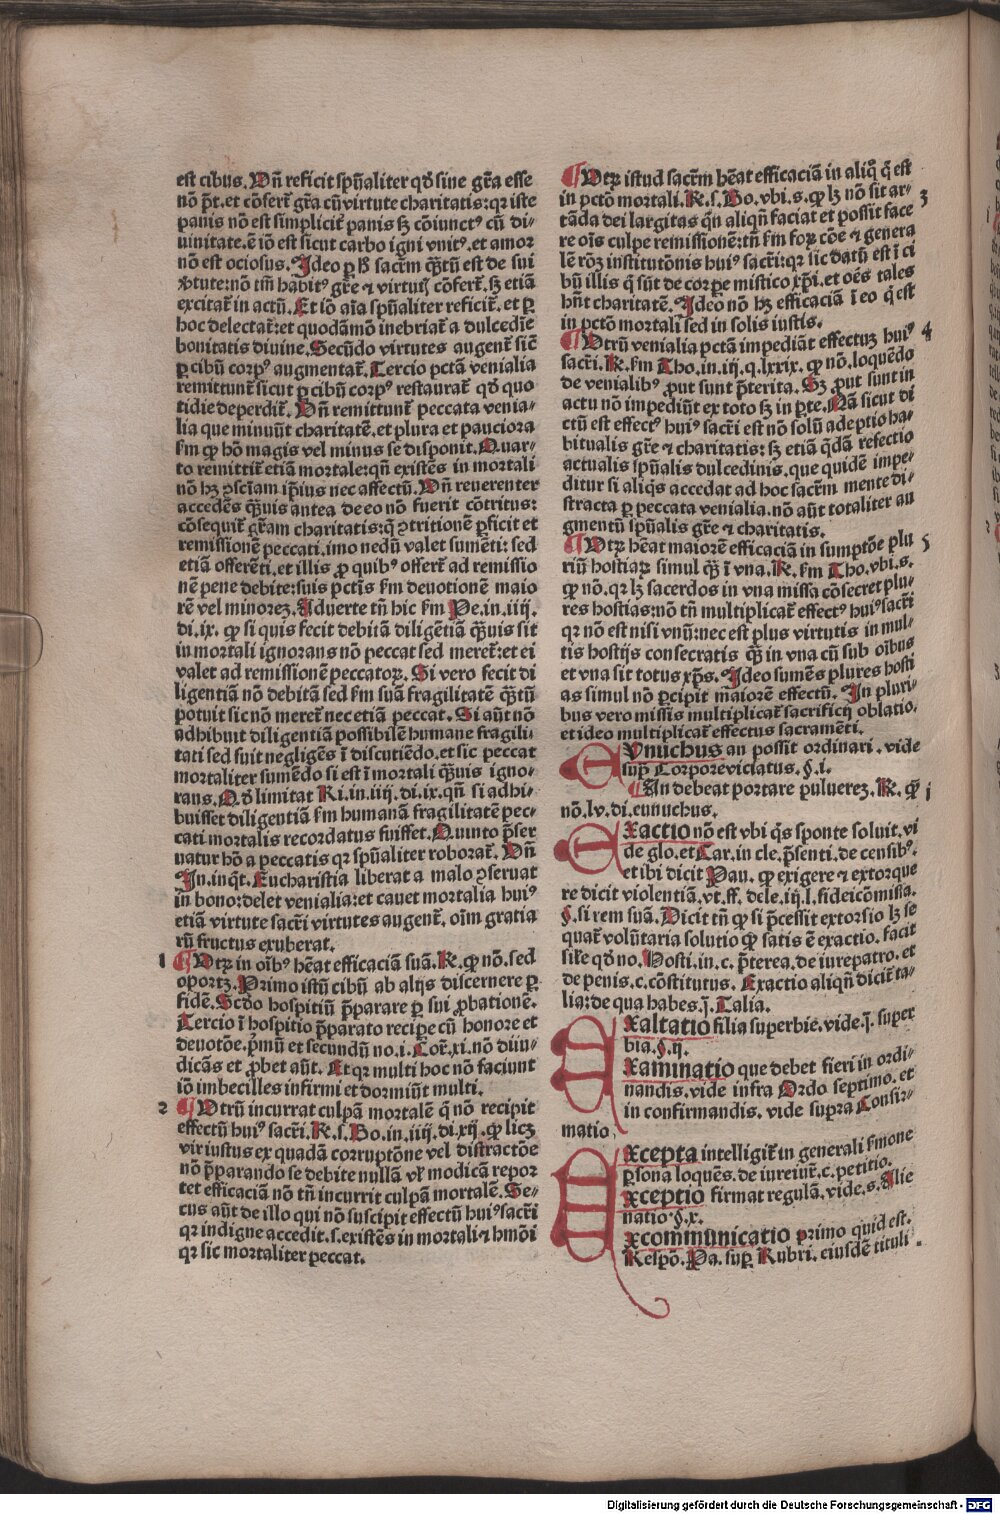 est cibus. Vn̄ reficit spūaliter qd̕ sine gr̄a esse
nō p̄t. et cōfert̄ gr̄a cū virtute charitatis: qꝛ iste
panis nō est simpliciť panis sꝫ cōiunctꝰ cū di-
uinitate. ē iō est sicut carbo igni vnitꝰ. et amor
nō est ociosus. Ideo ꝑ hͦ sacr̄m qᷓtū est de sui
v̓tute: nō tm̄ habitꝰ gr̄e ⁊ virtutꝭ cōfert̄. sꝫ etiā
excitat̄ in actū. Et iō aīa spūaliter reficit̄. et ꝑ
hoc delectat̄: et quodāmō inebriat̄ a dulcedīe
bonitatis diuine. Secūdo virtutes augent̄ sic̄
ꝑ cibū corpꝰ augmentat̄. Tercio pctā venialia
remittunt̄ sicut ꝑ cibū corpꝰ restaurat̄ qd̕ quo
tidie deperdit̄. Vn̄ remittunt̄ peccata venia-
lia que minuūt charitatē. et plura et pauciora
ẜm ꝙ hō magis vel minus se disponit. Quar-
to remittit̄ etiā mortale: qn̄ existēs in mortali
nō hꝫ ꝯsciam ip̄ius nec affectū. Vn̄ reuerenter
accedēs qᷓuis antea de eo nō fuerit cōtritus:
cōsequit̄ gr̄am charitatis: q̄ ꝯtritionē ꝑficit et
remissionē peccati. imo nedū valet sumēti: sed
etiā offerēti. et illis ꝓ quibꝰ offert̄ ad remissio
nē pene debite: suis pctīs ẜm deuotionē maio
rē vel minoreꝫ. Aduerte tn̄ hic ẜm Pe. in. iiij.
di. ix. ꝙ si quis fecit debitā diligētiā qᷓuis sit
in mortali ignorans nō peccat sed meret̄: et ei
valet ad remissionē peccatoꝝ. Si vero fecit di
ligentiā nō debitā sed ẜm suā fragilitatē qᷓtū
potuit sic nō meret̄ nec etiā peccat. Si aūt nō
adhibuit diligentiā possibilē humane fragili-
tati sed fuit negligēs ī discutiēdo. et sic peccat
mortaliter sumēdo si est ī mortali qᷓuis igno-
rans. Qd̕ limitat Ri. in. iiij. di. ix. qn̄ si adhi-
buisset diligentiā ẜm humanā fragilitatē pec-
cati mortalis recordatus fuisset. Quinto p̄ser
uatur hō a peccatis qꝛ spūaliter roborat̄. Vn̄
In. inqͥt. Eucharistia liberat a malo ꝯseruat
in bono: delet venialia: et cauet mortalia huiꝰ
etiā virtute sacr̄i virtutes augent̄. oīm gratia
rū fructus exuberat.
1 ¶ Vtꝝ in oībꝰ hēat efficaciā suā. R. ꝙ nō. sed
oportꝫ. Primo istū cibū ab alijs discernere ꝑ
fidē. Scd̕o hospitiū p̄parare ꝑ sui ꝓbationē.
Tercio ī hospitio p̄parato recipe cū honore et
deuotōe. p̄mū et secundū no. i. Cor̄. xi. nō diiu-
dicās et ꝓbet aūt. Et qꝛ multi hoc nō faciunt
iō imbecilles infirmi et dormiūt multi.
2 ¶ Vtrū incurrat culpā mortalē q̇ nō recipit
effectū huiꝰ sacr̄i. R. s. Bo. in. iiij. di. xij. ꝙ licꝫ
vir iustus ex quadā corruptōne vel distractōe
nō p̄parando se debite nullā vl̕ modicā repor
tet efficaciā nō tn̄ incurrit culpā mortalē. Se-
cus aūt de illo qui nō suscipit effectū huiꝰ sacr̄i
qꝛ indigne accedit. s. existēs in mortali ⁊ hmōi
qꝛ sic mortaliter peccat.
¶ Vtꝝ istud sacr̄m hēat efficaciā in aliqͦ q̇ est
in pctō mortali. R. s. Bo. vbi. s. ꝙ lꝫ nō sit ar- 3
tāda dei largitas qͥn aliqn̄ faciat et possit face
re oīs culpe remissionē: tn̄ ẜm forꝫ cōe ⁊ genera
lē rōꝫ institutōnis huiꝰ sacr̄i: qꝛ sic datū est ī ci
bū illis q̇ sūt de corꝑe mistico xp̄i. et oēs tales
hn̄t charitatē. Ideo nō hꝫ efficaciā ī eo q̇ est
in pctō mortali sed in solis iustis.
¶ Vtrū venialia pctā impediāt effectuꝫ huiꝰ 4
sacr̄i. R. ẜm Tho. in. iij. q. lxxix. ꝙ nō. loquēdo
de venialibꝰ ꝓut sunt p̄terita. Sꝫ ꝓut sunt in
actu nō impediūt ex toto sꝫ in ꝑte. Nā sicut di
ctū est effectꝰ huiꝰ sacr̄i est nō solū adeptio ha-
bitualis gr̄e ⁊ charitatis: sꝫ etiā q̄dā refectio
actualis spūalis dulcedinis. que quidē impe-
ditur si aliq̇s accedat ad hoc sacr̄m mente di-
stracta ꝑ peccata venialia. nō aūt totaliter au
gmentū spūalis gr̄e ⁊ charitatis.
¶ Vtꝝ hēat maiorē efficaciā in sumptōe plu 5
riū hostiaꝝ simul qᷓ ī vna. R. ẜm Tho. vbi. s.
ꝙ nō. qꝛ lꝫ sacerdos in vna missa cōsecret plu-
res hostias: nō tn̄ multiplicat̄ effectꝰ huiꝰ sacr̄i
qꝛ nō est nisi vnū: nec est plus virtutis in mul-
tis hostijs consecratis qᷓ in vna cū sub oībus
et vna sit totus xp̄s. Ideo sumēs plures hosti
as simul nō ꝑcipit maiorē effectū. In pluri-
bus vero missis multiplicat̄ sacrificij oblatio.
et ideo multiplicat̄ effectus sacramēti.
EVnuchus an possit ordinari. vide
supꝭ Corpore viciatus. §. i.
¶ An debeat portare puluereꝫ. R. ꝙ i
nō. lv. di. eunuchus.
EXactio nō est vbi q̇s sponte soluit. vi
de glo. et Car. in cle. p̄senti. de censibꝰ.
et ibi dicit Pau. ꝙ exigere ⁊ extorque
re dicit violentiā. vt. ff. de le. iij. l. fideicōmissa.
§. si rem suā. Dicit tn̄ ꝙ si p̄cessit extorsio lꝫ se
quat̄ volūtaria solutio ꝙ satis ē exactio. facit
sil̕e qd̕ no. Hosti. in. c. p̄terea. de iurepatro. et
de penis. c. cōstitutus. Exactio aliqn̄ dicit̄ ta-
lia: de qua habes. j̄. Talia.
EXaltatio filia superbie. vide. j̄. super
bia. §. ij.
EXaminatio que debet fieri in ordi-
nandis. vide infra Ordo septimo. et
in confirmandis. vide supra Confir-
matio
EXcepta intelligit̄ in generali ẜmone
ꝑsona loquēs. de iureiur̄. c. petitio.
EXceptio firmat regulā. vide. s. Alie
natio §. x.
EXcommunicatio primo quid est.
Respō. Pa. supꝭ Rubri. eiusdē tituli
Digitalisierung gefördert durch die Deutsche Forschungsgemeinschaft - DFG